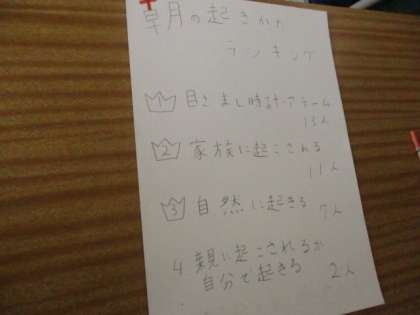 皐月の起きかた
ランキング
1 目さまし時計・アラーム
13人
2 家族に起こされる
11人
3 自然に起きる 7人
4 親に起こされるか
自分で起きる 2人